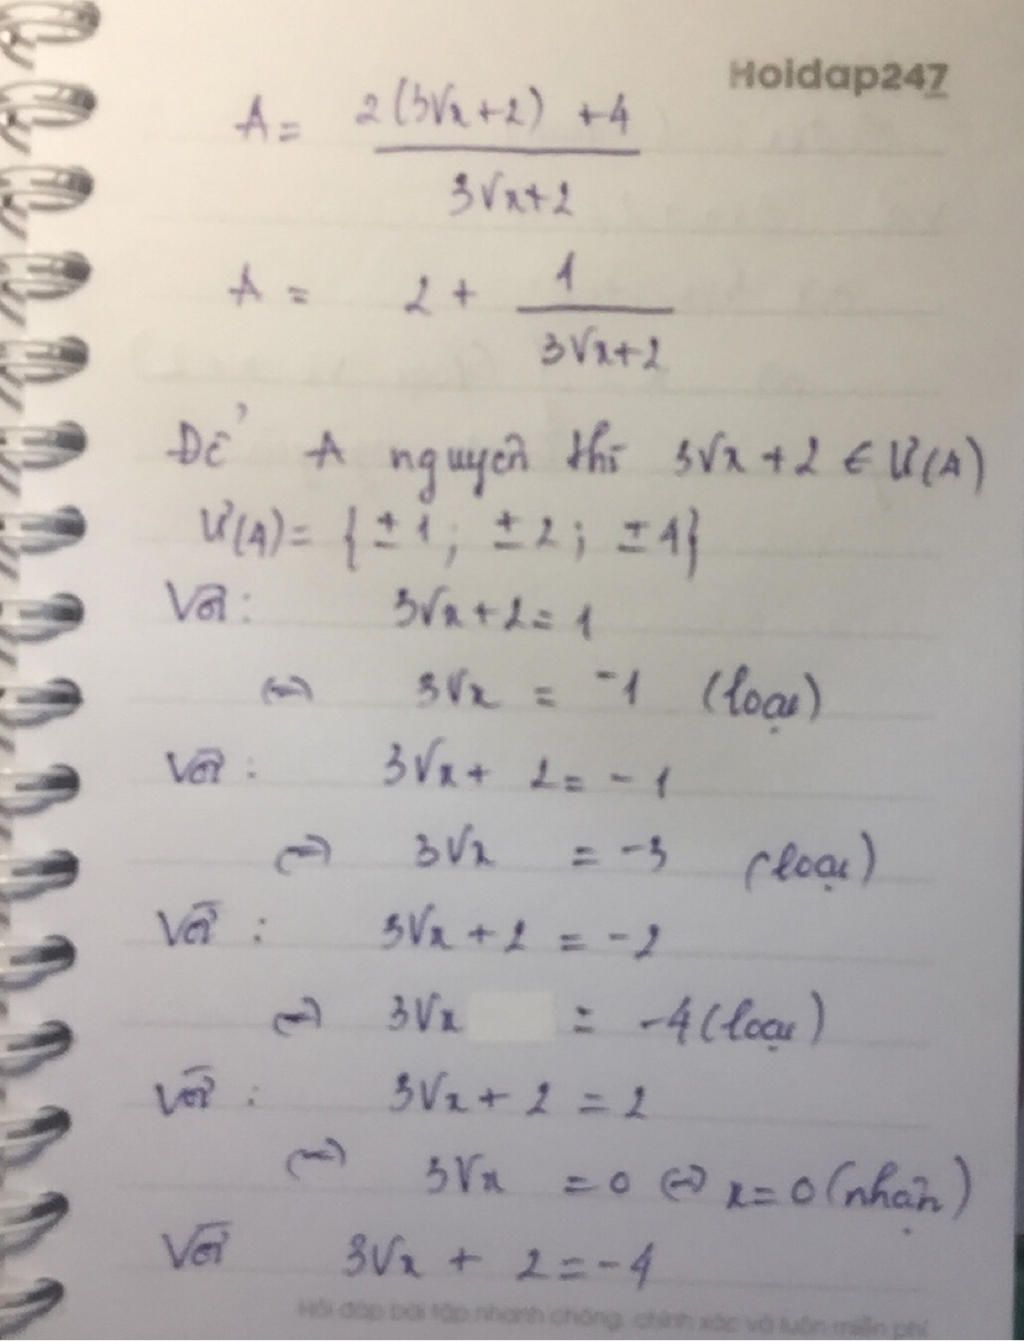 Hoidap247
A = 2(3√x+2) +4 / 3√x+2
A = 2 + 4 / 3√x+2
Để A nguyên thì 3√x + 2 ∈ Ư(4)
Ư(4) = {±1; ±2; ±4}
Với: 3√x + 2 = 1
⇔ 3√x = -1 (loại)
Với: 3√x + 2 = -1
⇔ 3√x = -3 (loại)
Với: 3√x + 2 = -2
⇔ 3√x = -4 (loại)
Với: 3√x + 2 = 2
⇔ 3√x = 0 ⇔ x = 0 (nhận)
Với 3√x + 2 = -4
Hỏi đáp bài tập nhanh chóng, chính xác và luôn miễn phí